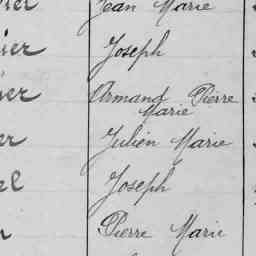 Jean Marie
Joseph
Armand Pierre
Marie
Julien Marie
Joseph
Pierre Marie